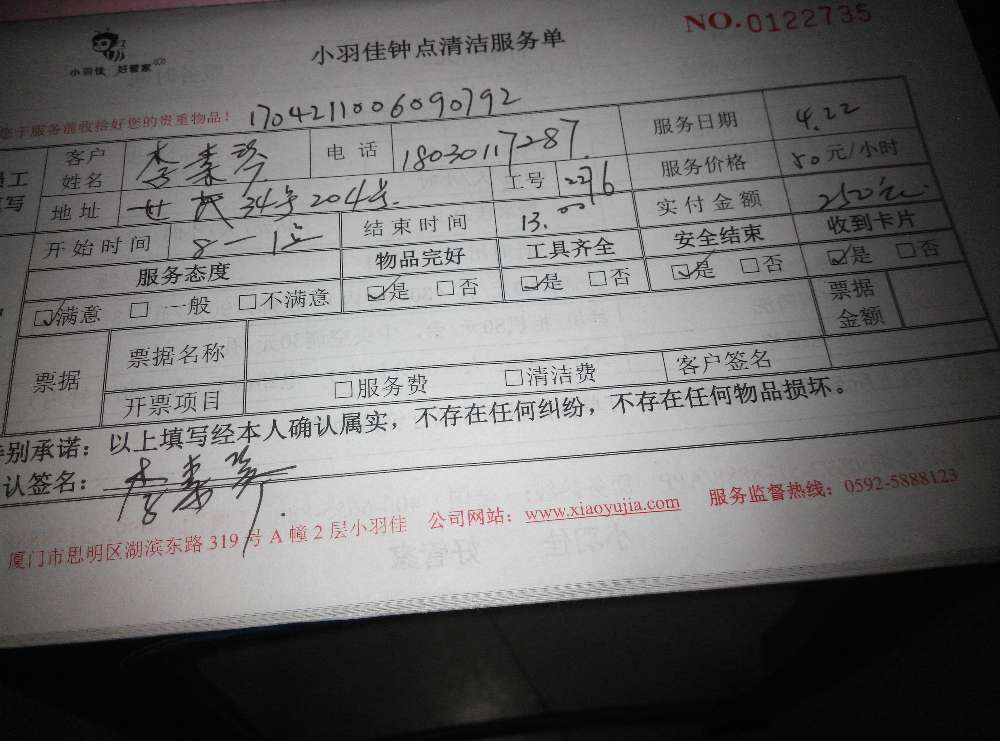 NO.0122735
小羽佳 好管家
小羽佳钟点清洁服务单
您于服务前收拾好您的贵重物品！ 1704211006090792
员工填写 客户姓名 李素琴 电话 18030117287 服务日期 4.22
地址 34号204号 工号 2276 服务价格 50元/小时
开始时间 8 结束时间 13.00 实付金额 250元
服务态度 物品完好 工具齐全 安全结束 收到卡片
☑满意 □一般 □不满意 ☑是 □否 ☑是 □否 ☑是 □否 ☑是 □否
票据 票据名称 票据金额
开票项目 □服务费 □清洁费 客户签名
特别承诺：以上填写经本人确认属实，不存在任何纠纷，不存在任何物品损坏。
认签名： 李素琴
厦门市思明区湖滨东路319号A幢2层小羽佳 公司网站：www.xiaoyujia.com 服务监督热线：0592-5888123